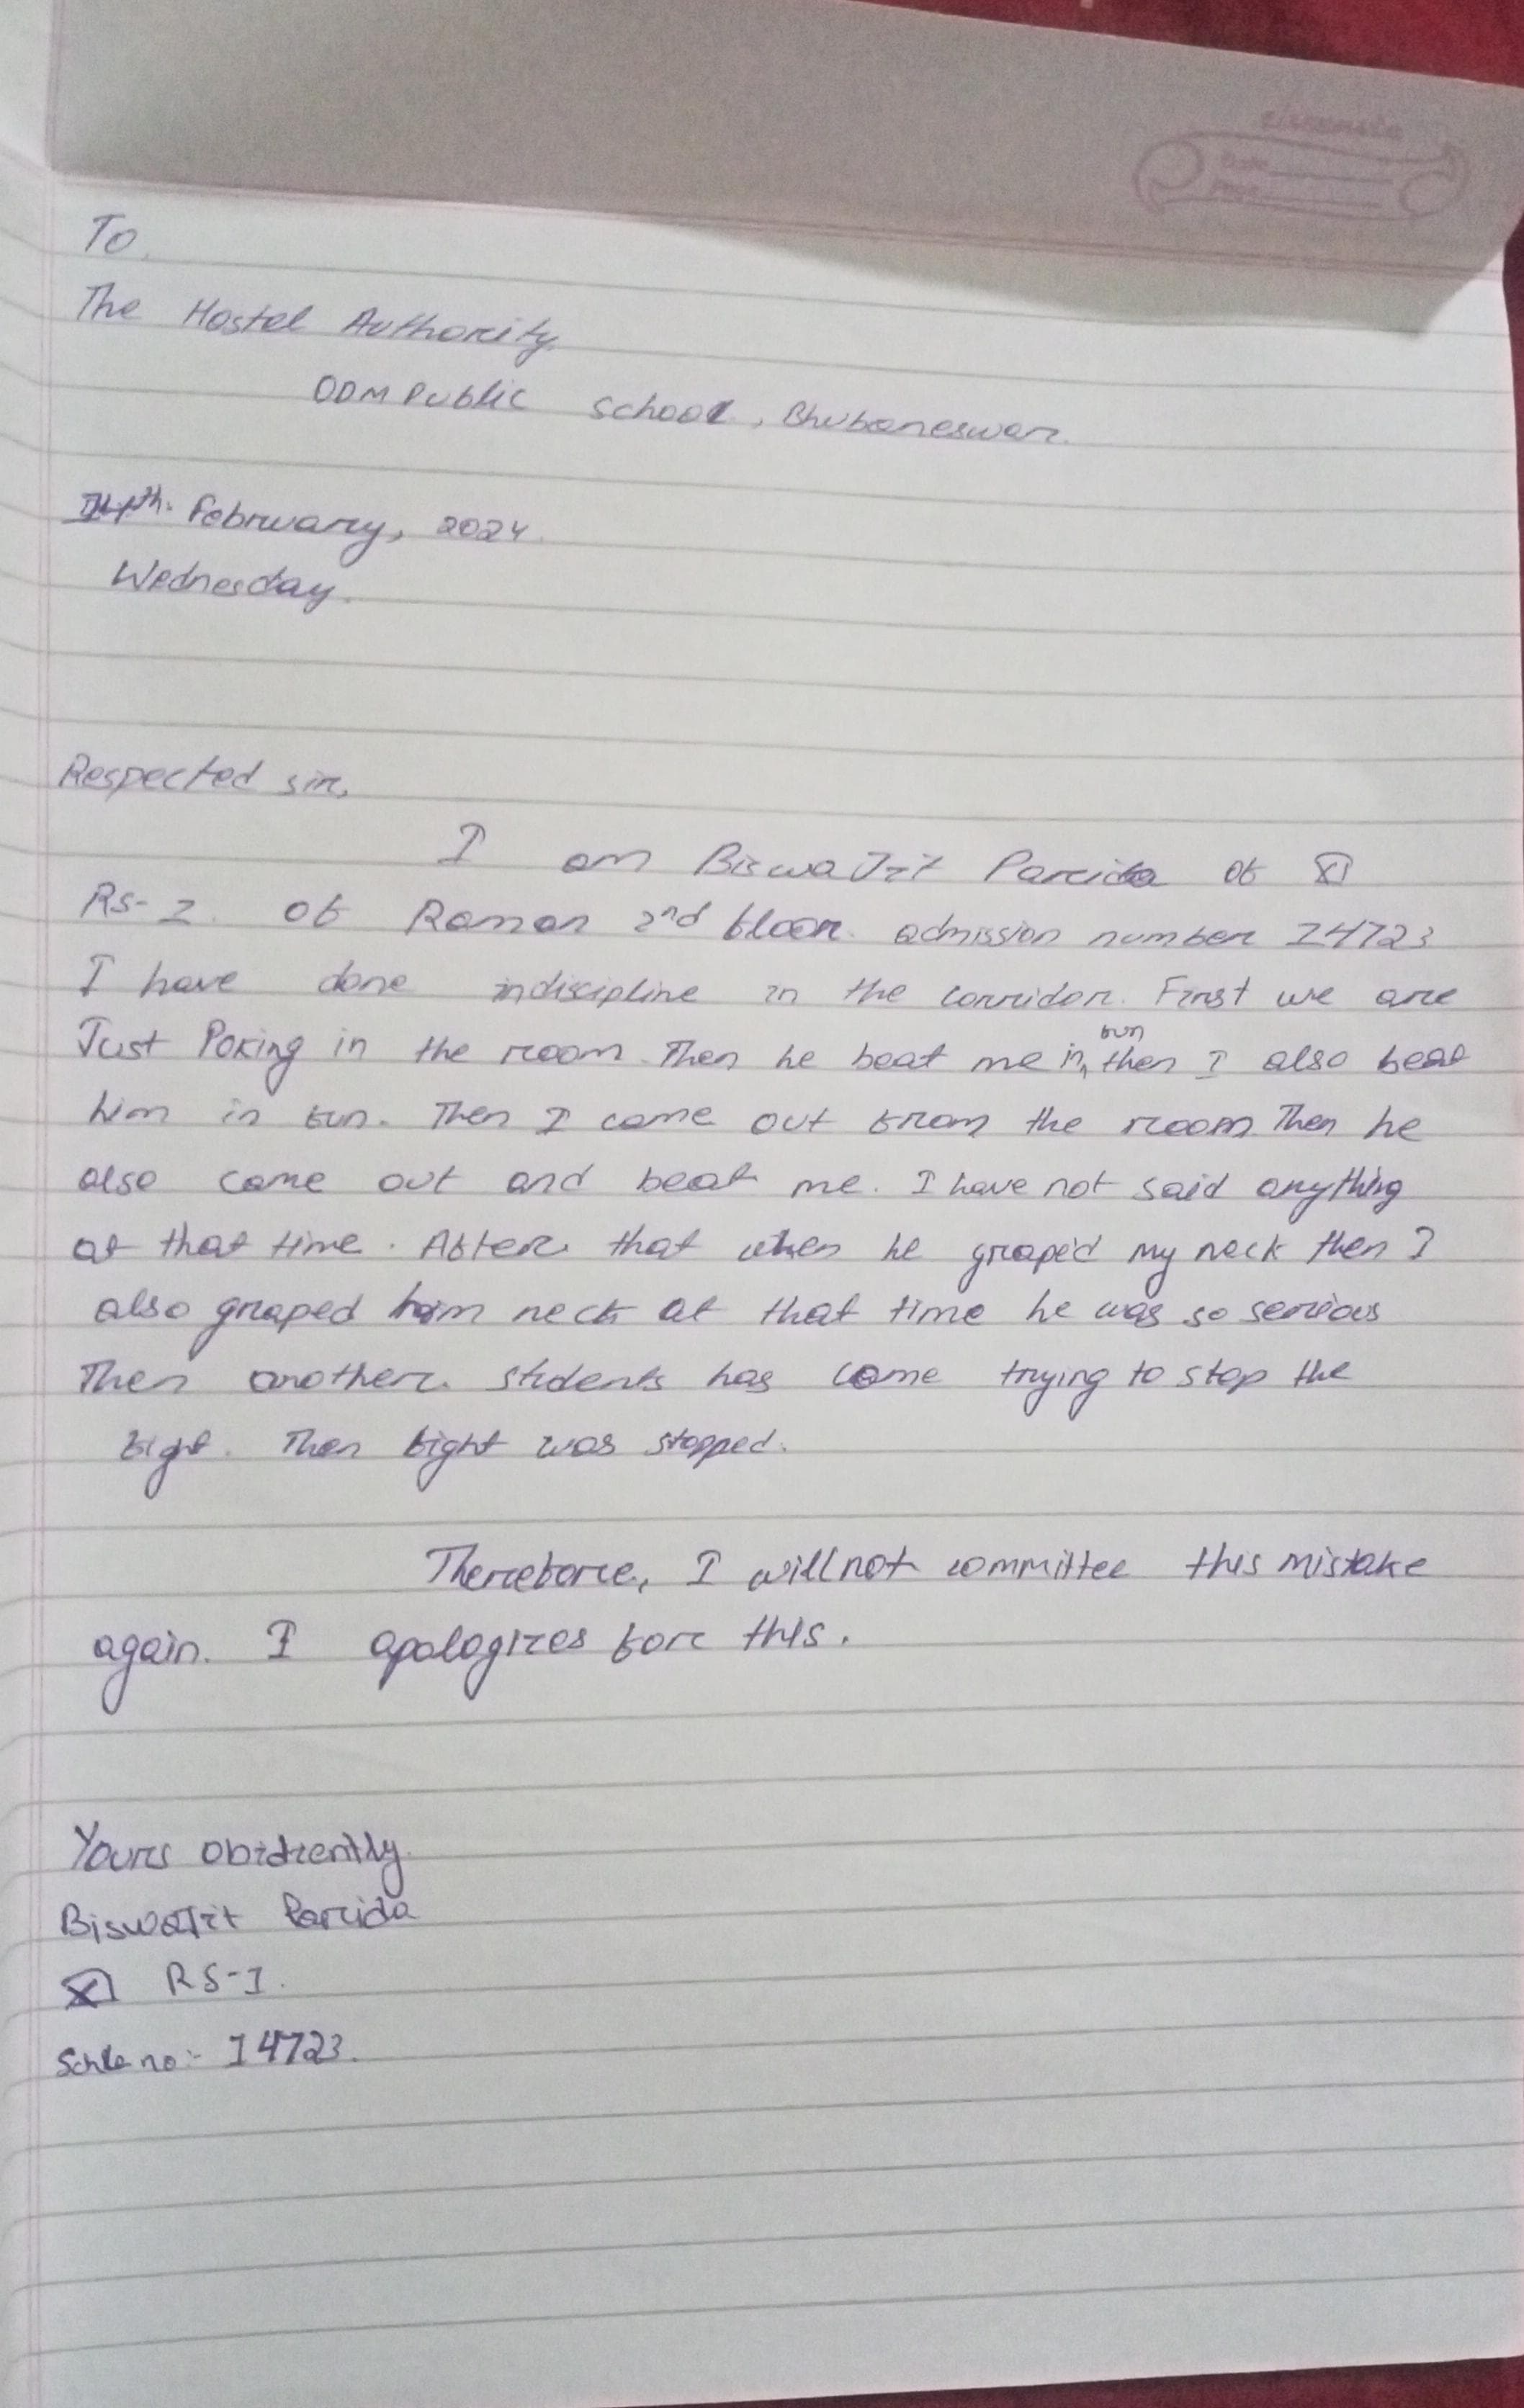 classmate
Date
Page
To,
The Hostel Authority.
ODM Public School, Bhubaneswar.
14th. February, 2024.
Wednesday.
Respected sir,
I am BiswaJit Parida of XI
RS-1. of Raman 2nd floor. admission number 14723
I have done indiscipline in the corridor. First we are
Just Poking in the room. Then he beat me in fun then I also beat
him in fun. Then I come out from the room. Then he
also come out and beat me. I have not said anything
at that time. After that when he graped my neck then I
also graped him neck at that time he was so serious
Then another students has come trying to stop the
fight. Then fight was stopped.
Therefore, I will not committee this mistake
again. I apologizes for this.
Yours obidiently.
BiswaJit Parida
XI RS-1.
no:- 14723.